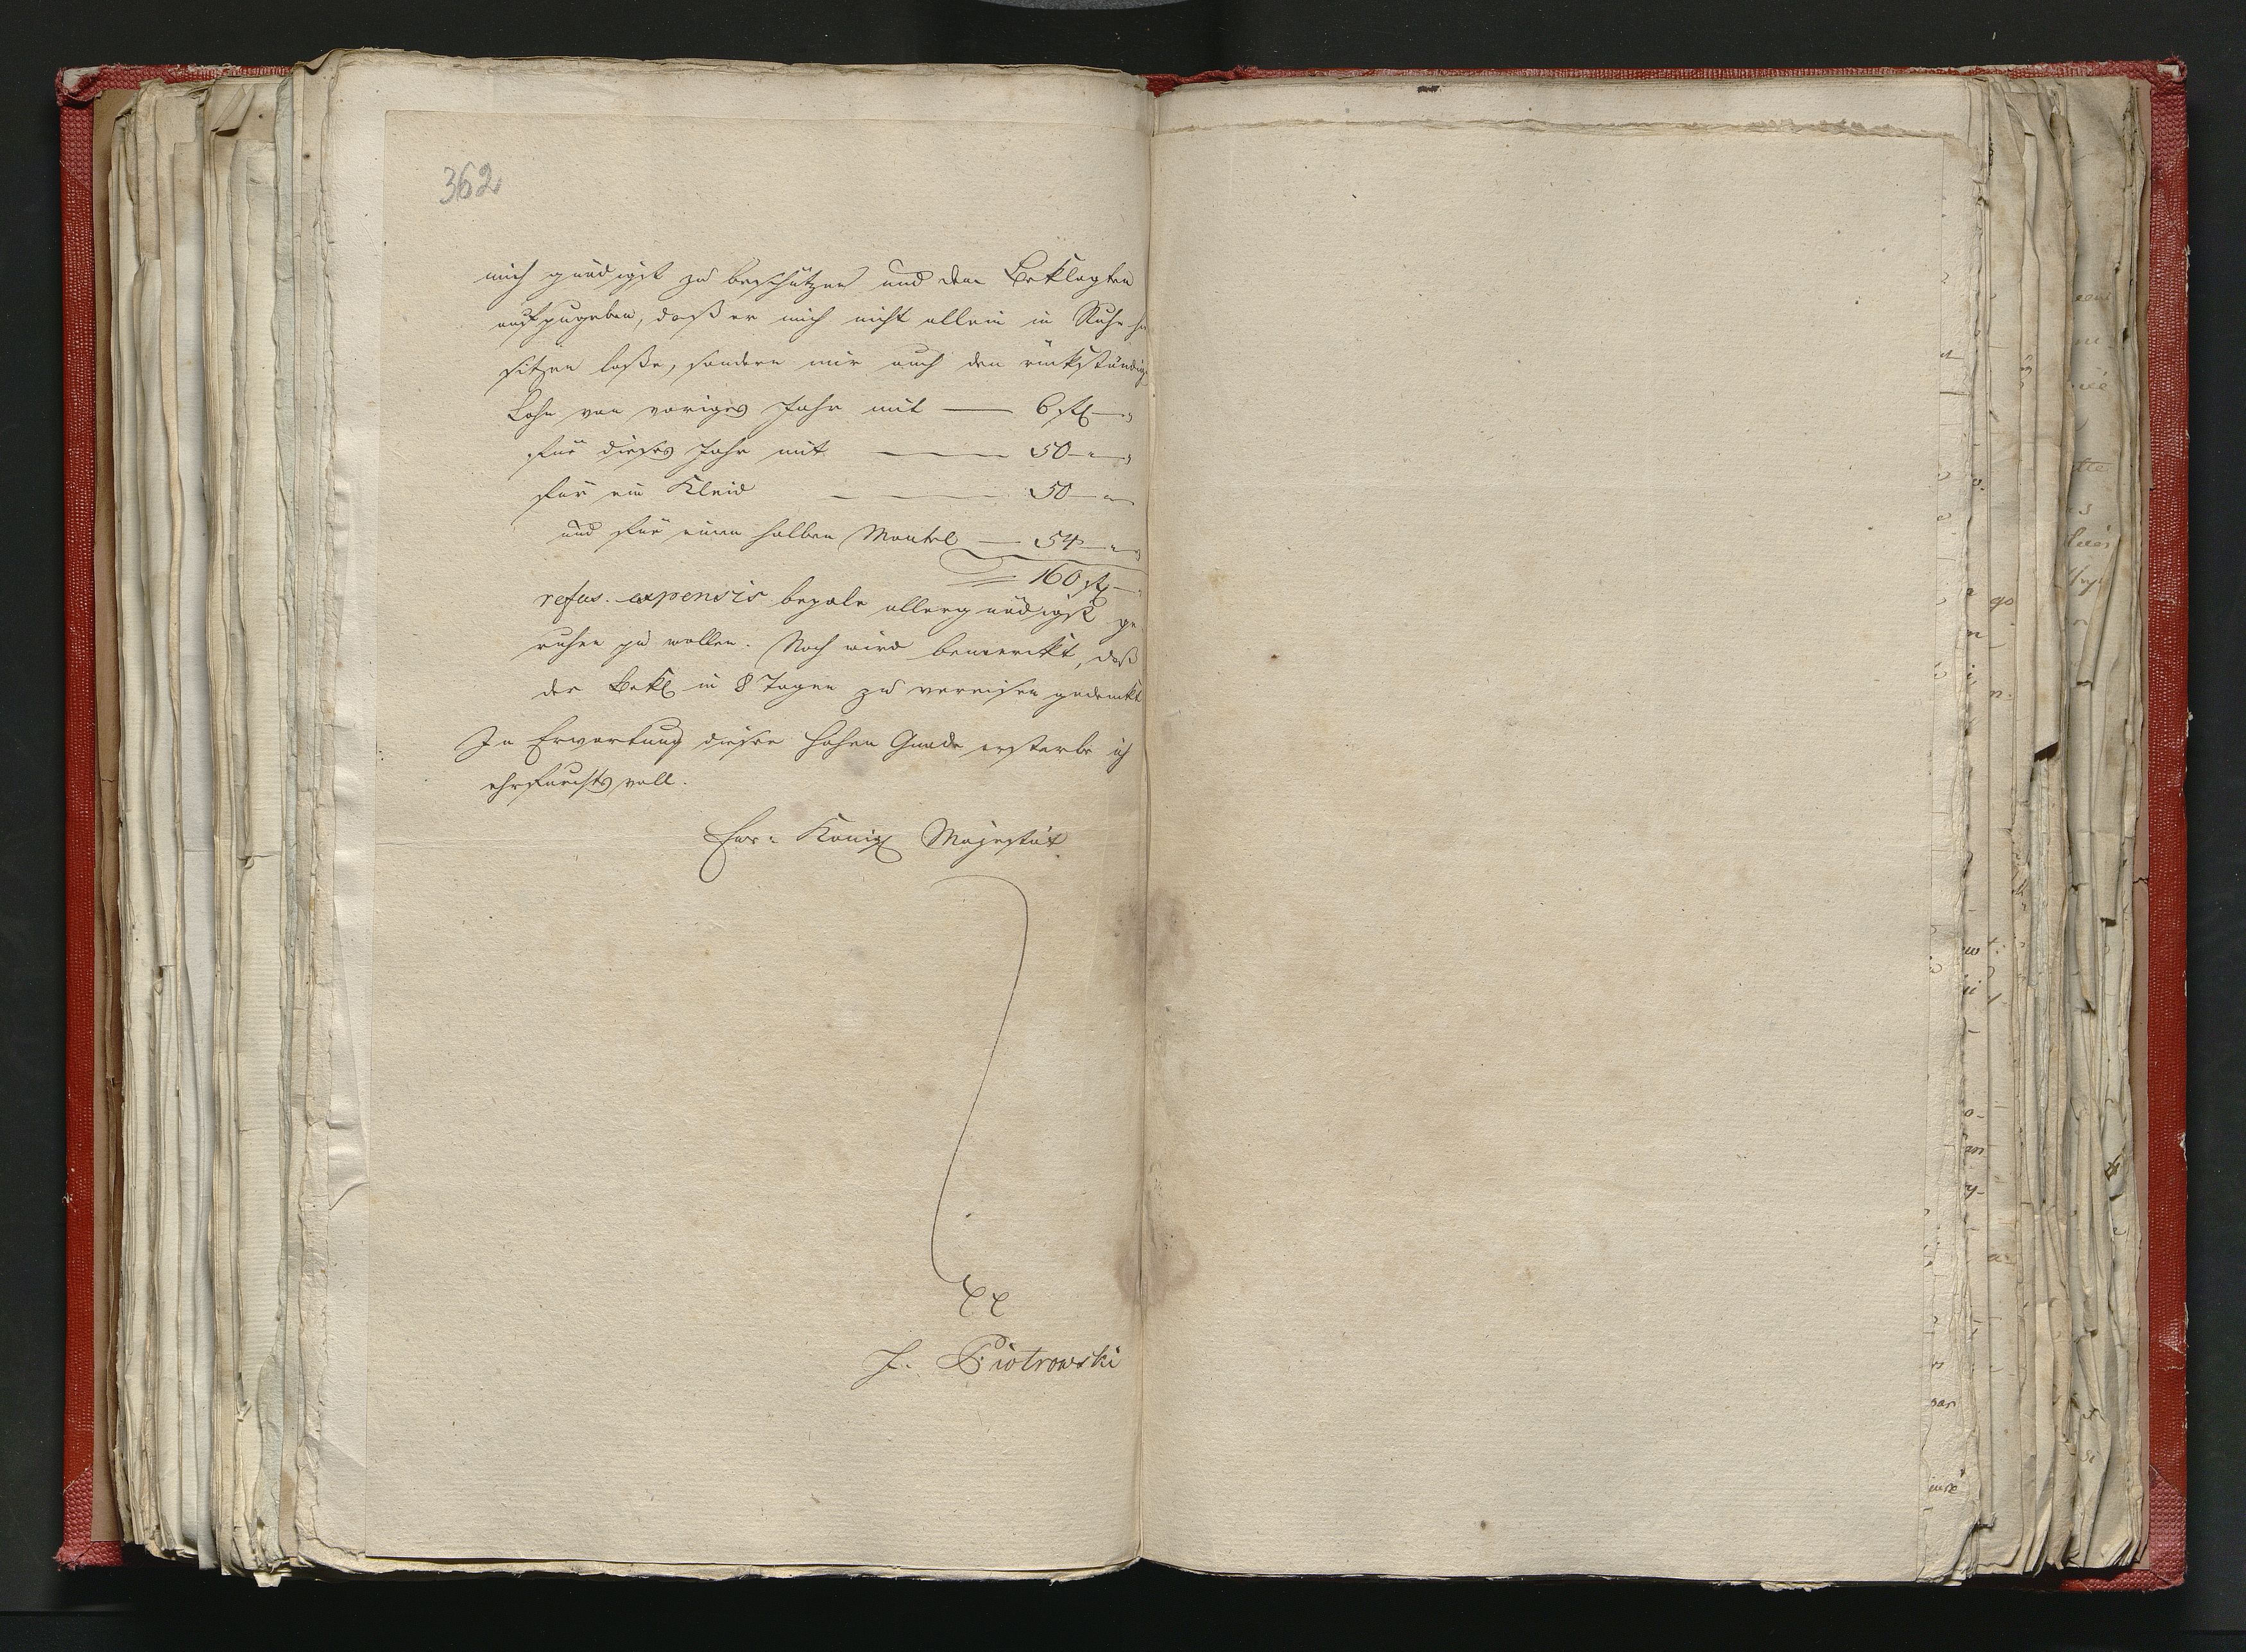 362
mich gnädigst zu beschützen und dem Beklagten
aufzugeben, daß er mich nicht allein in Ruhe
sitzen laße, sondern mir auch den rückständig
Lohn von voriges Jahr mit — 6 fl —
für dieses Jahr mit — 50 —
für ein Kleid — 50 —
und für einen halben Mantel — 54 —
160 fl —
refus. expensis bezale allergnädigst ge
ruhen zu wollen. Noch wird bemerckt, daß
der Bekl in 8 Tagen zu vereisen gedenckt
In Erwartung dieser hohen Gnade ersterbe ich
ehrfurchtsvoll.
Ew: Königl Majestät
J. Piotrowski